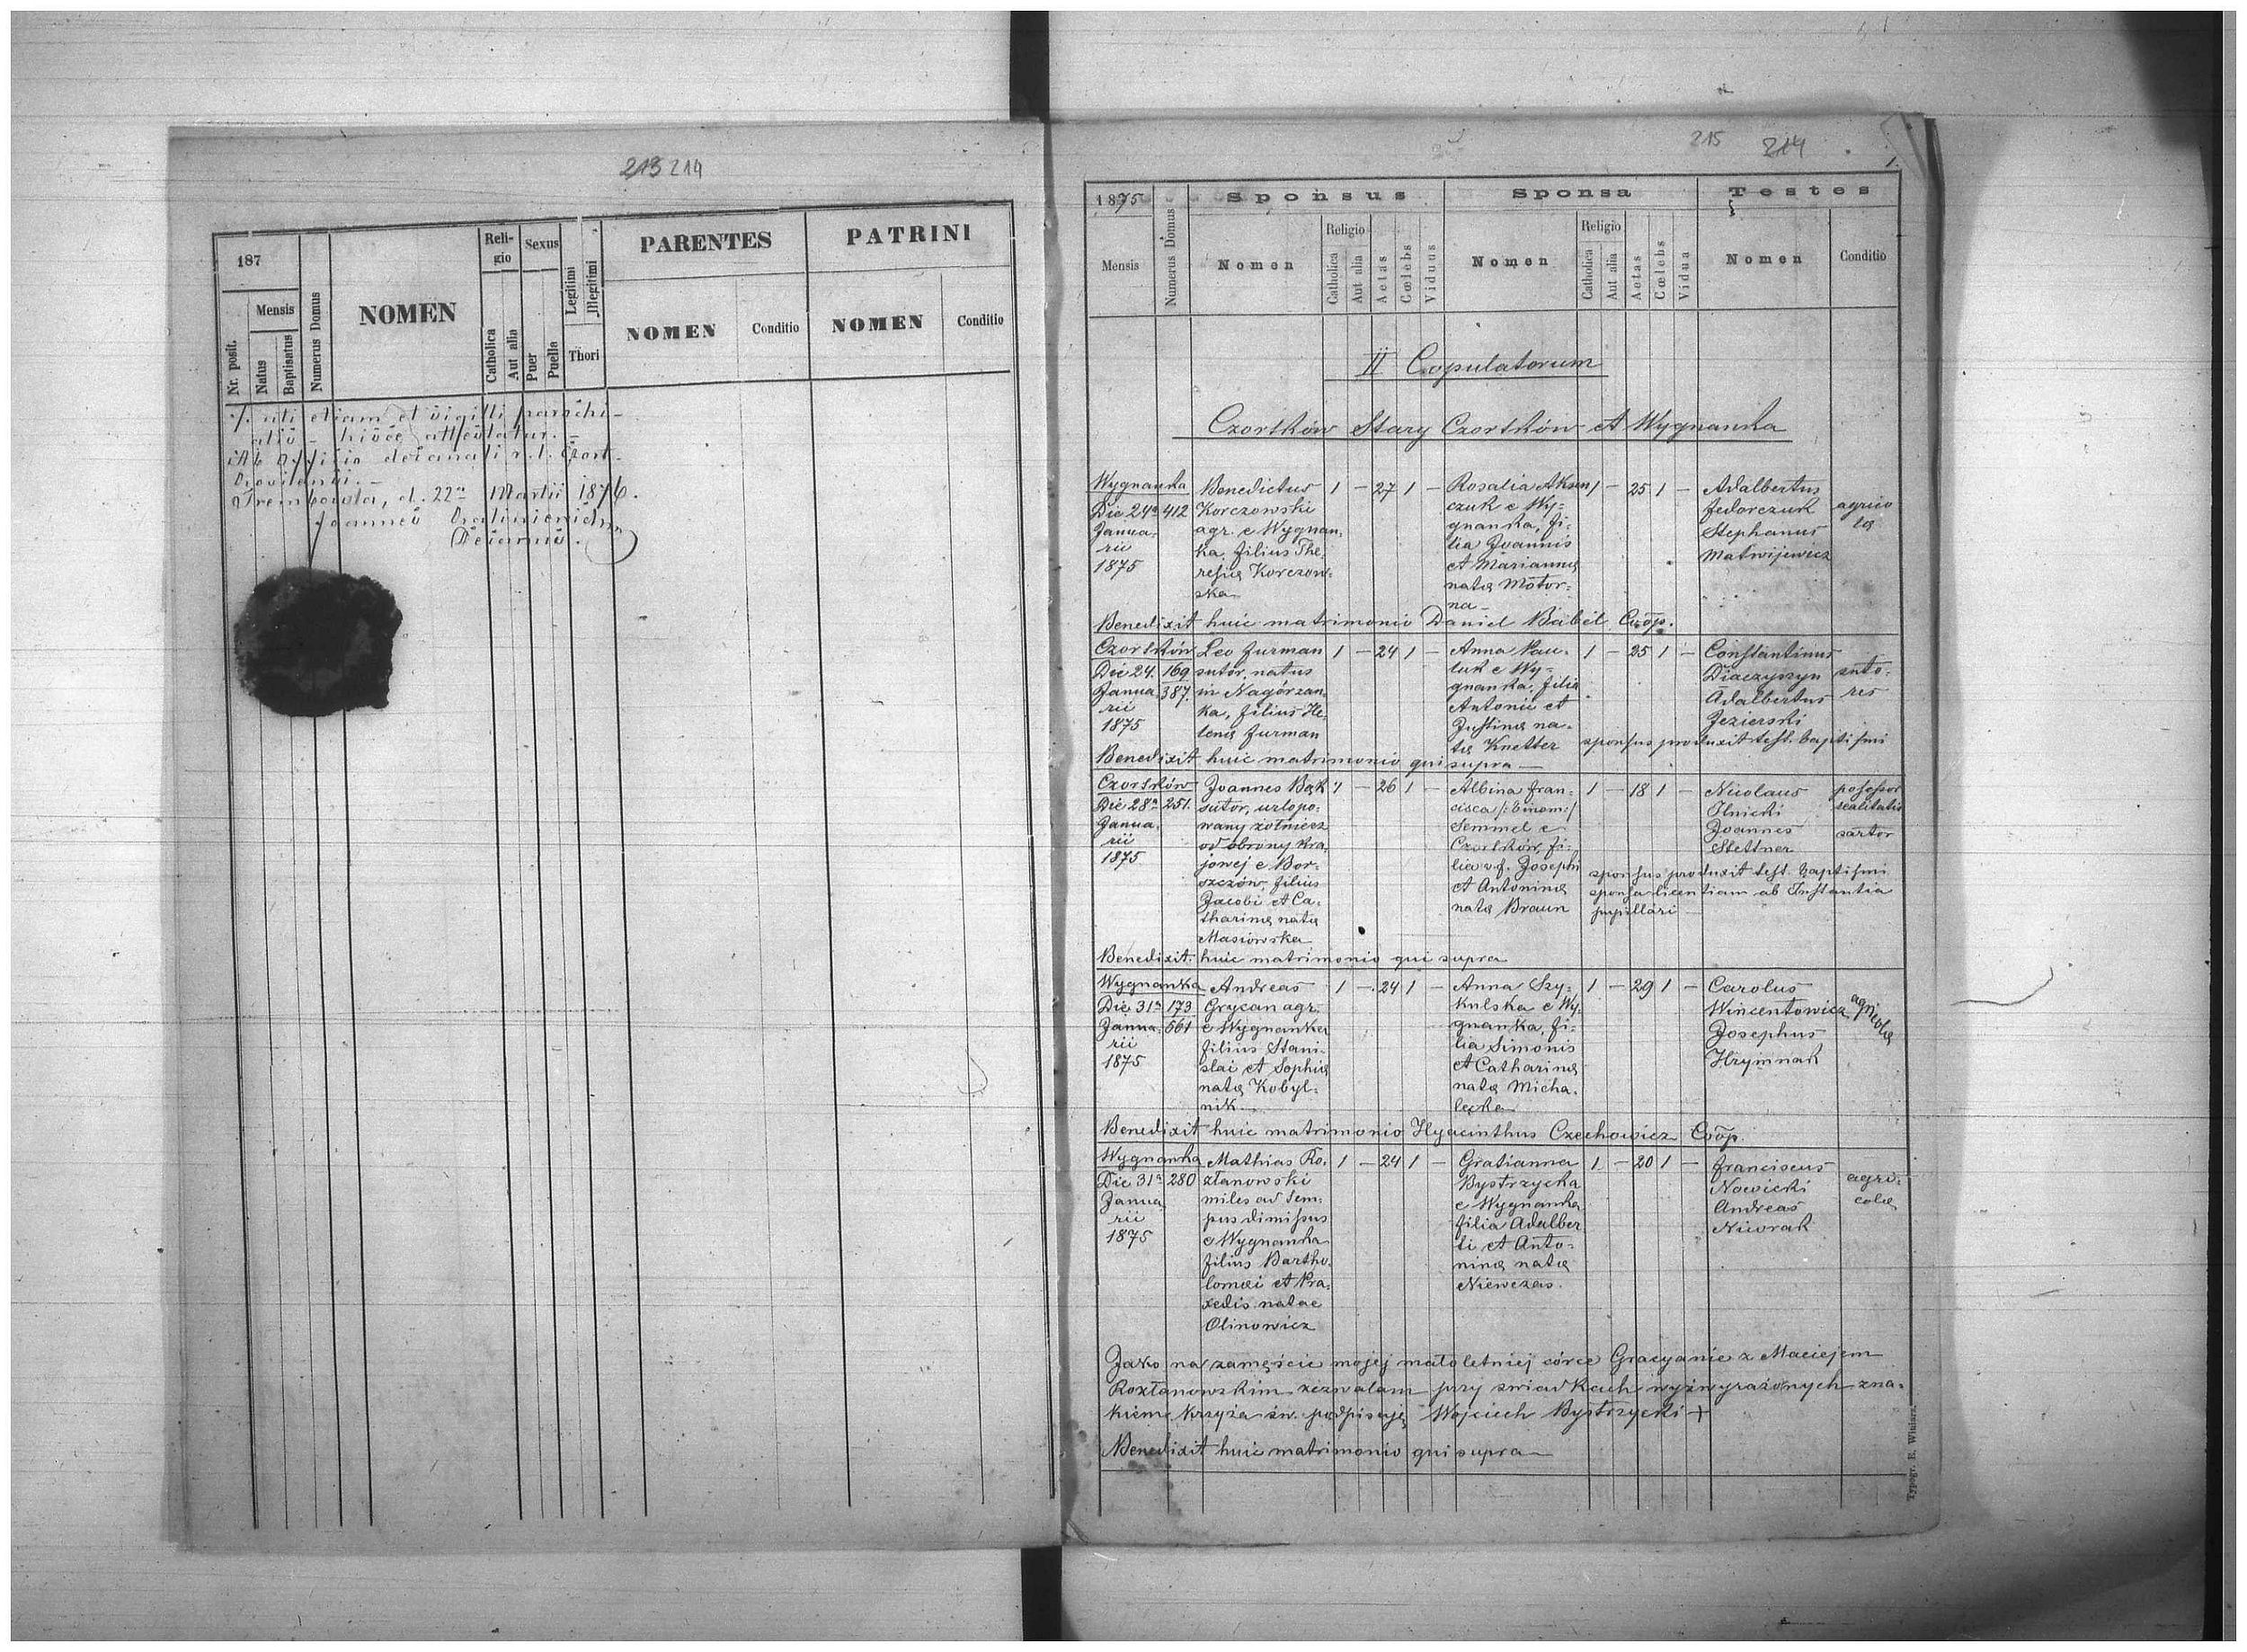 213 214
187
Nr. posit.
Mensis
Natus
Baptisatus
Numerus Domus
NOMEN
Reli-
gio
Catholica
Aut alia
Sexus
Puer
Puella
Legitimi
Illegitimi
Thori
PARENTES
NOMEN
Conditio
PATRINI
NOMEN
Conditio
uti etiam et sigilli parochi-
alis hisce attestatur.
Ab officio decanali r. l. Czort-
coviensi.-
Trembowla, d. 22a Martii 1876.
Joannes
Decanus.
215 214
1.
1875
Mensis
Numerus Domus
Sponsus
Nomen
Religio
Catholica
Aut alia
Aetas
Cœlebs
Viduus
Sponsa
Nomen
Religio
Catholica
Aut alia
Aetas
Cœlebs
Vidua
Testes
Nomen
Conditio
II Copulatorum
Czortków Stary Czortków et Wygnanka
Wygnanka
Die 24a
Janua-
rii
1875
412
Benedictus
Korczowski
agr. e Wygnan-
ka, filius The-
resiæ Korczow-
ska
1 – 27 1 –
Rosalia Aksen-
czuk e Wy-
gnanka, fi-
lia Joannis
et Mariannæ
natæ Motor-
na –
1 – 25 1 –
Adalbertus
Fedorczuk
Stephanus
Matwijewicz
agrico
læ
Benedixit huic matrimonio Daniel Babel Coop.
Czortków
Die 24.
Janua-
rii
1875
169
387.
Leo Furman
sutor, natus
in Nagórzan-
ka, filius He-
lenæ Furman
1 – 24 1 –
Anna Pau-
luk e Wy-
gnanka, filia
Antonii et
Justinæ na-
tæ Knetter
1 – 25 1 –
Constantinus
Diaczyszyn
Adalbertus
Jezierski
suto-
res
sponsus produxit test. baptismi
Benedixit huic matrimonio qui supra –
Czortków
Die 28a
Janua-
rii
1875
251.
Joannes Bąk
sutor, urlopo-
wany żołnierz
od obrony kra-
jowej e Bor-
szczów, filius
Jacobi et Ca-
tharinæ natæ
Masiowska
1 – 26 1 –
Albina Fran-
cisca /: binom:/
Semmel e
Czortków, fi-
lia v.f. Josephi
et Antoninæ
natæ Braun
1 – 18 1 –
Nicolaus
Ilnicki
Joannes
Stettner
possessor
realitatis
sartor
sponsus produxit test. baptismi
sponsa licentiam ab Instantia
pupillari –
Benedixit huic matrimonio qui supra
Wygnanka
Die 31a
Janua-
rii
1875
173
561
Andreas
Grycan agr.
e Wygnanka
filius Stani-
slai et Sophiæ
natæ Kobyl-
nik
1 – 24 1 –
Anna Szy-
kulska e Wy-
gnanka, fi-
lia Simonis
et Catharinæ
natæ Micha-
lecka
1 – 29 1 –
Carolus
Wincentowicz
Josephus
Hrymnak
agricolæ
Benedixit huic matrimonio Hyacinthus Czechowicz Coop
Wygnanka
Die 31a
Janua
rii
1875
280
Mathias Ro-
złanowski
miles ad tem-
pus dimissus
e Wygnanka
filius Bartho-
lomæi et Pra-
xedis natae
Olinowicz
1 – 24 1 –
Gratianna
Bystrzycka
e Wygnanka
filia Adalber
ti et Anto-
ninæ natæ
Niewczas.
1 – 20 1 –
Franciscus
Nowicki
Andreas
Niworak
agri-
colæ
Jako na zamęście mojej małoletniej córce Gracyanie z Maciejem
Rozłanowskim zezwalam przy swiadkach wyżwyrażonych zna-
kiem krzyża św. podpisuję Wojciech Bystrzycki +
Benedixit huic matrimonio qui supra –
Typogr. E. Winiarz.